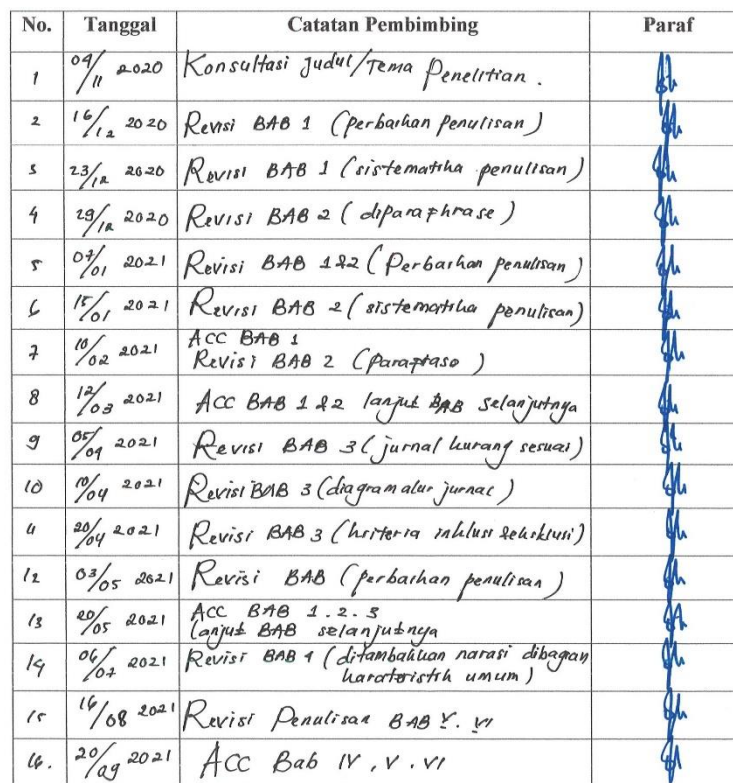 No. Tanggal Catatan Pembimbing Paraf
1 04/11 2020 Konsultasi judul/Tema Penelitian.
2 16/12 2020 Revisi BAB 1 (perbaikan penulisan)
3 23/12 2020 Revisi BAB 1 (sistematika penulisan)
4 29/12 2020 Revisi BAB 2 (diparaphrase)
5 07/01 2021 Revisi BAB 1&2 (Perbaikan penulisan)
6 15/01 2021 Revisi BAB 2 (sistematika penulisan)
7 10/02 2021 ACC BAB 1
Revisi BAB 2 (Paraftase)
8 12/03 2021 ACC BAB 1&2 lanjut BAB selanjutnya
9 05/04 2021 Revisi BAB 3 (jurnal kurang sesuai)
10 10/04 2021 Revisi BAB 3 (diagram alur jurnal)
11 20/04 2021 Revisi BAB 3 (kriteria inklusi &eksklusi)
12 03/05 2021 Revisi BAB (perbaikan penulisan)
13 20/05 2021 ACC BAB 1.2.3
lanjut BAB selanjutnya
14 06/07 2021 Revisi BAB 4 (ditambahkan narasi dibagian
karateristik umum)
15 16/08 2021 Revisi Penulisan BAB V. VI
16. 20/09 2021 ACC Bab IV, V. VI